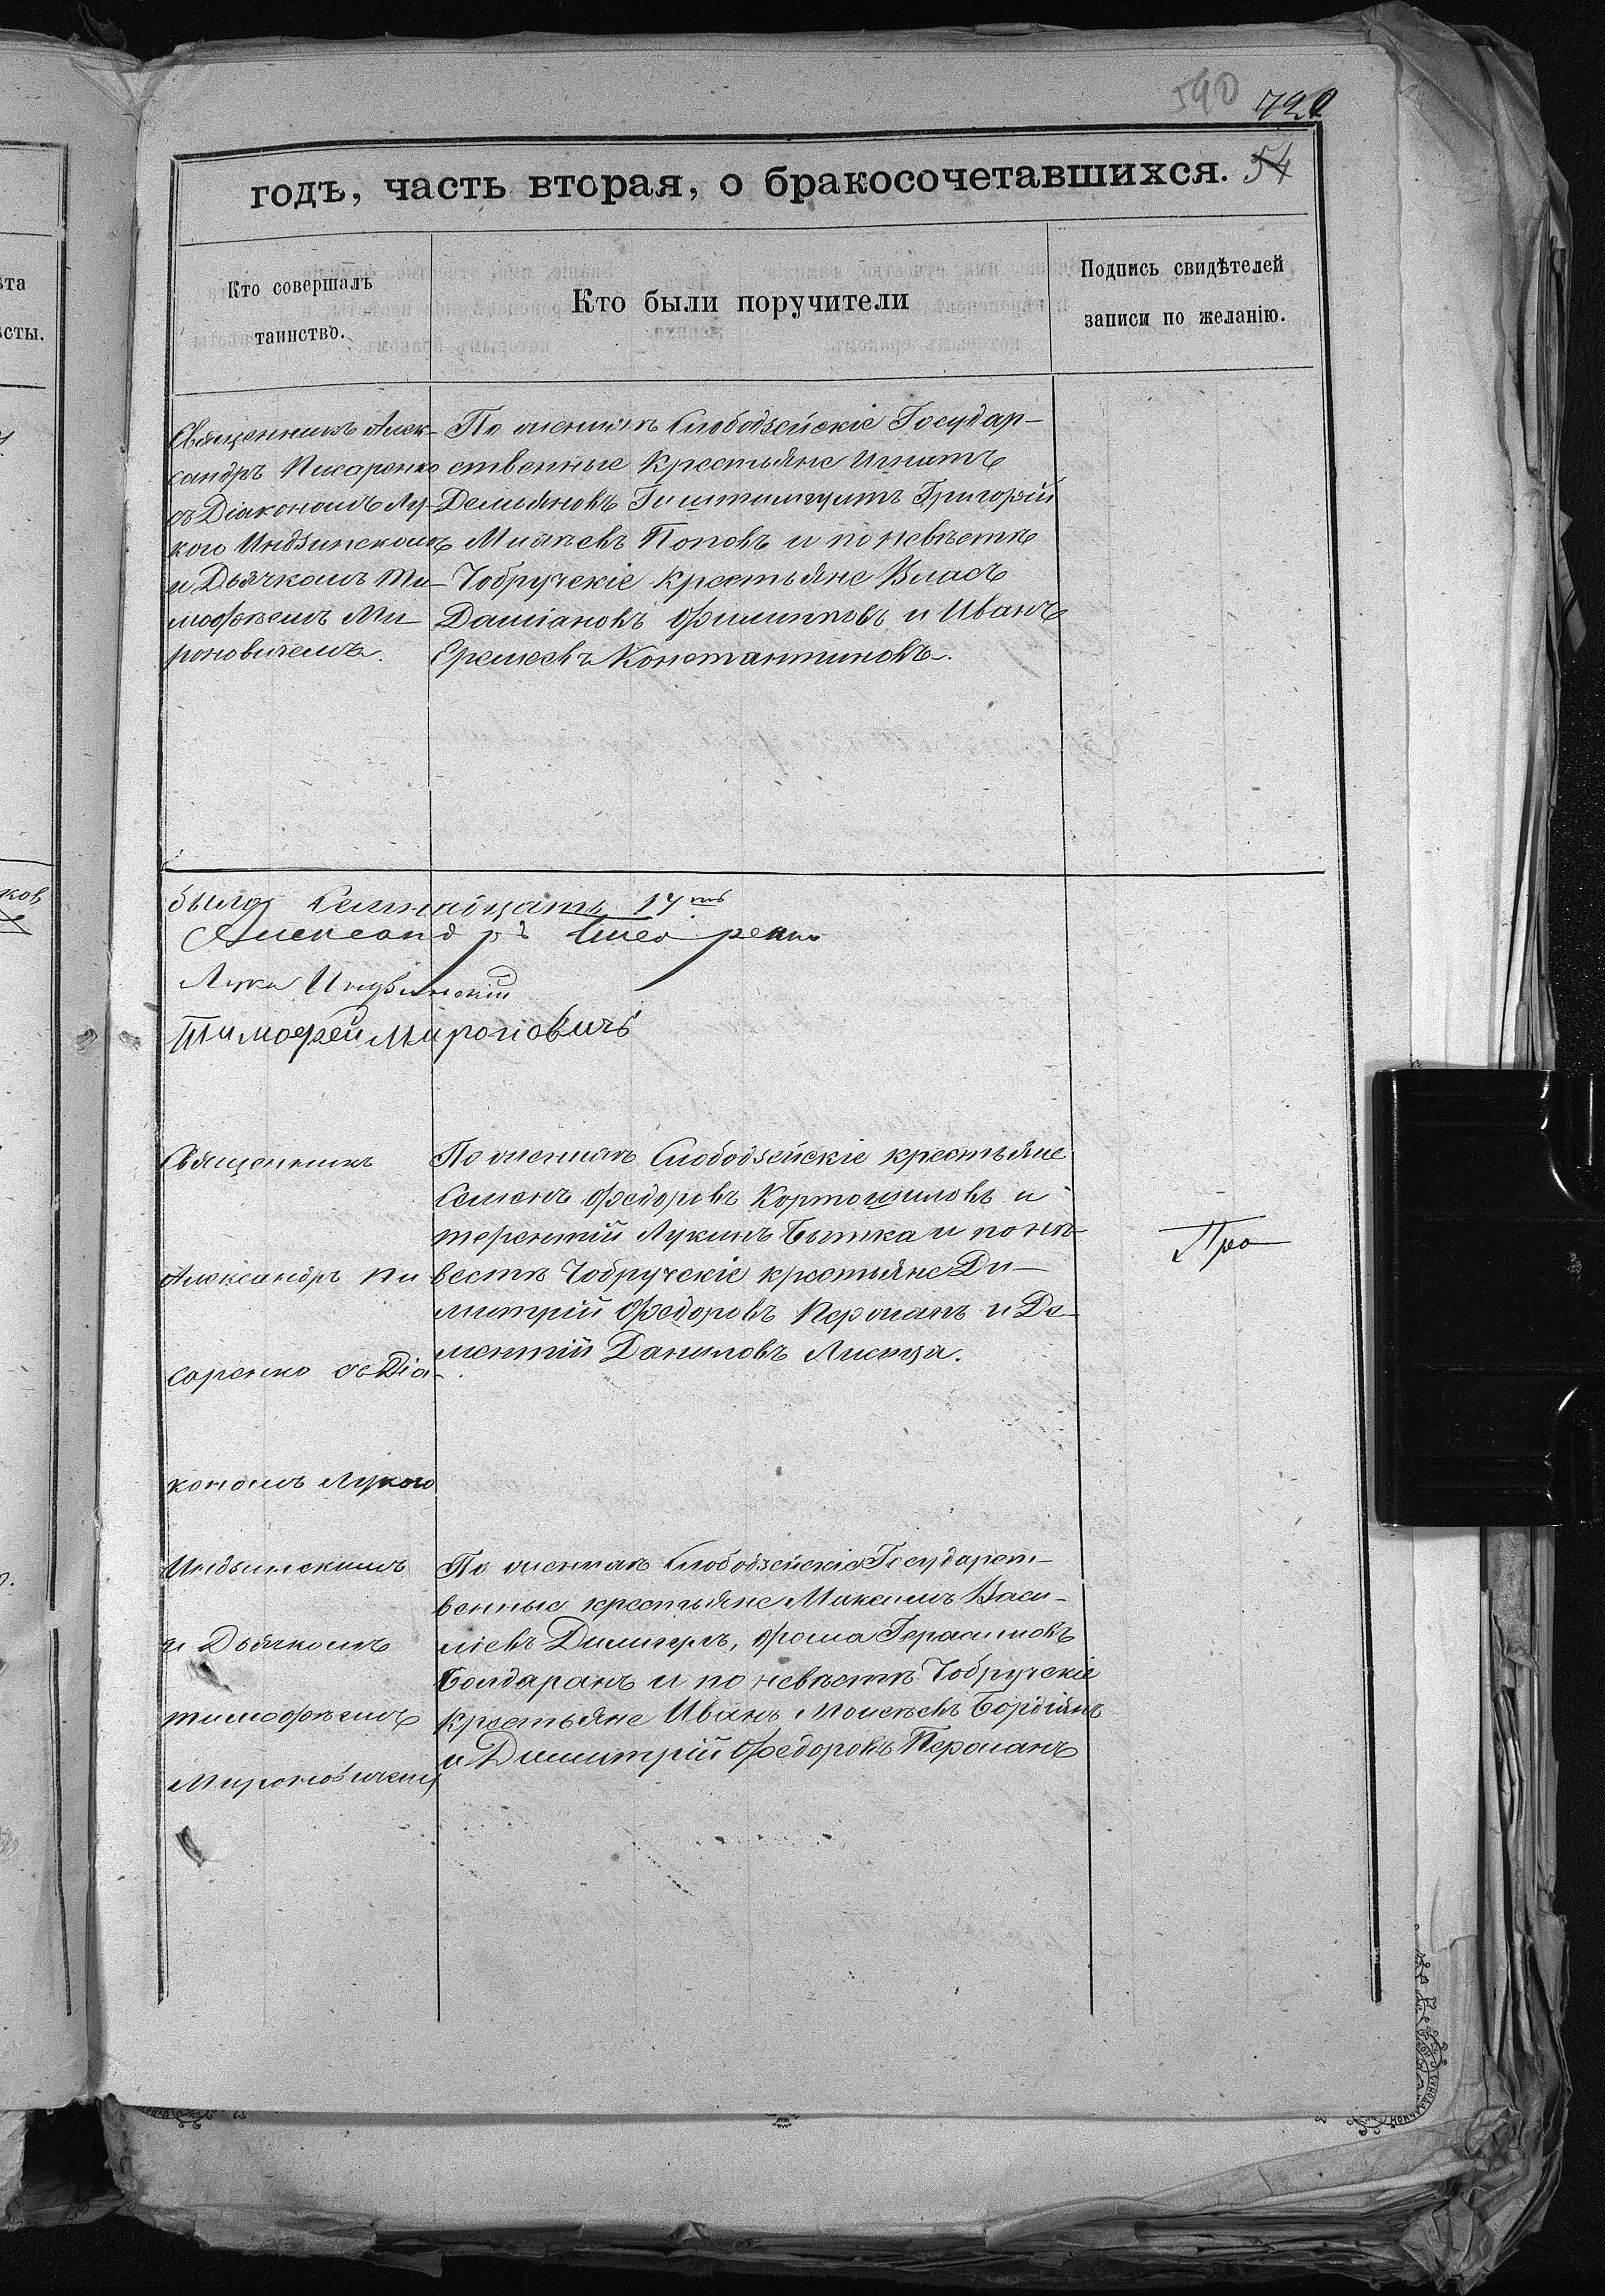 540 720
годъ, часть вторая, о бракосочетавшихся. 54
Кто совершалъ
таинство.
Кто были поручители
Подпись свидѣтелей
записи по желанію.
Священникъ Алек-
сандръ Писаренко
съ Діакономъ Лу-
кою Индзинскимъ
и Дьячкомъ Ти-
мофѣемъ Ми-
роновичемъ.
По женихѣ Слободзейскіе Государ-
ственные крестьяне Игнатъ
Демьяновъ Григорій
Поповъ и по невѣстѣ
Чобручскіе крестьяне Власъ
Даміановъ Филиповъ и Иванъ
Еремеевъ Константиновъ.
было Семнадцать 17
Александръ Писаренко
Лука Индзинскій
Тимофей Мироновичъ
Священникъ
Александръ Пи
саренко съ Діа-
кономъ Лукою
Индзинскимъ
и Дьячкомъ
Тимофѣемъ
Мироновичемъ
По женихѣ Слободзейскіе крестьяне
Семенъ Федоровъ Кортошиловъ и
Терентій Лукинъ Бытка и по не-
вестѣ Чобручскіе крестьяне Ди-
митрій Федоровъ Пероганъ и Де-
ментій Даниловъ Листза.
Пра
По женихѣ Слободзейскіе Государст-
венные крестьяне Максимъ Васи-
ліевъ Димитръ, Фома Герасимовъ
Болдаранъ и по невѣстѣ Чобручскіе
крестьяне Иванъ Моисѣевъ Бордіянъ
и Димитрій Федоровъ Пероганъ
ѣта
ѣсты.
ков